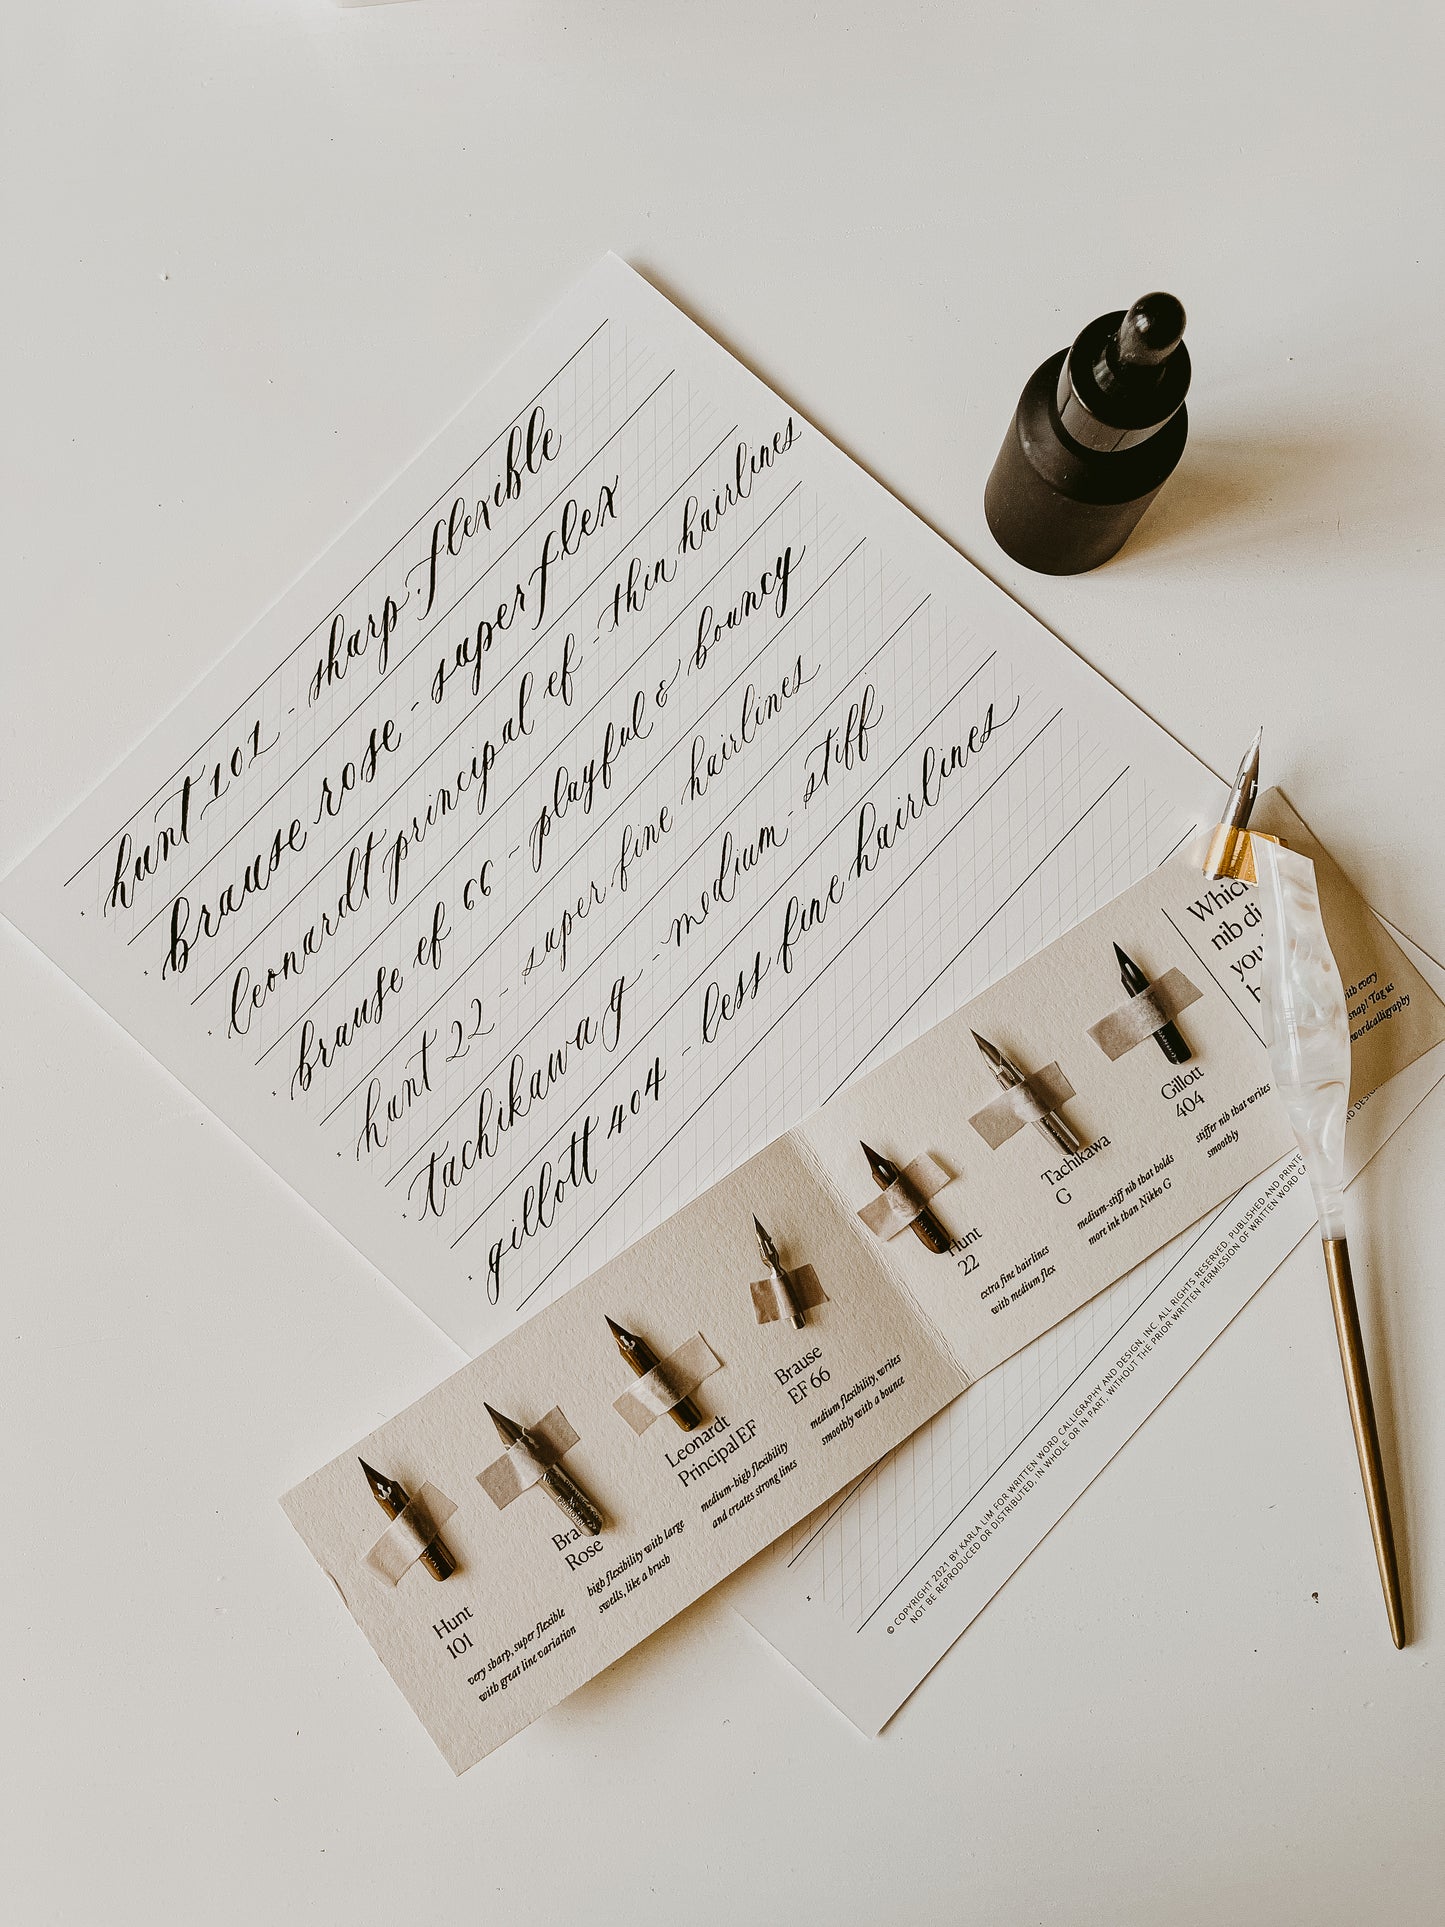 hunt 101 - sharp. flexible
brause rose - super flex
leonardt principal ef - thin hairlines
brause ef 66 - playful & bouncy
hunt 22 - super fine hairlines
tachikawa g - medium - stiff
gillott 404 - less fine hairlines
Hunt
101
very sharp, super flexible
with great line variation
Rose
high flexibility with large
swells, like a brush
Leonardt
Principal EF
medium-high flexibility
and creates strong lines
Brause
EF 66
medium flexibility, writes
smoothly with a bounce
Hunt
22
extra fine hairlines
with medium flex
Tachikawa
G
medium-stiff nib that holds
more ink than Nikko G
Gillott
404
stiffer nib that writes
smoothly
nib
with every
snap! Tag us
wordcalligraphy
© COPYRIGHT 2021 BY KARLA LIM FOR WRITTEN WORD CALLIGRAPHY AND DESIGN, INC. ALL RIGHTS RESERVED. PUBLISHED AND
NOT BE REPRODUCED OR DISTRIBUTED, IN WHOLE OR IN PART, WITHOUT THE PRIOR WRITTEN PERMISSION OF WRITTEN WORD